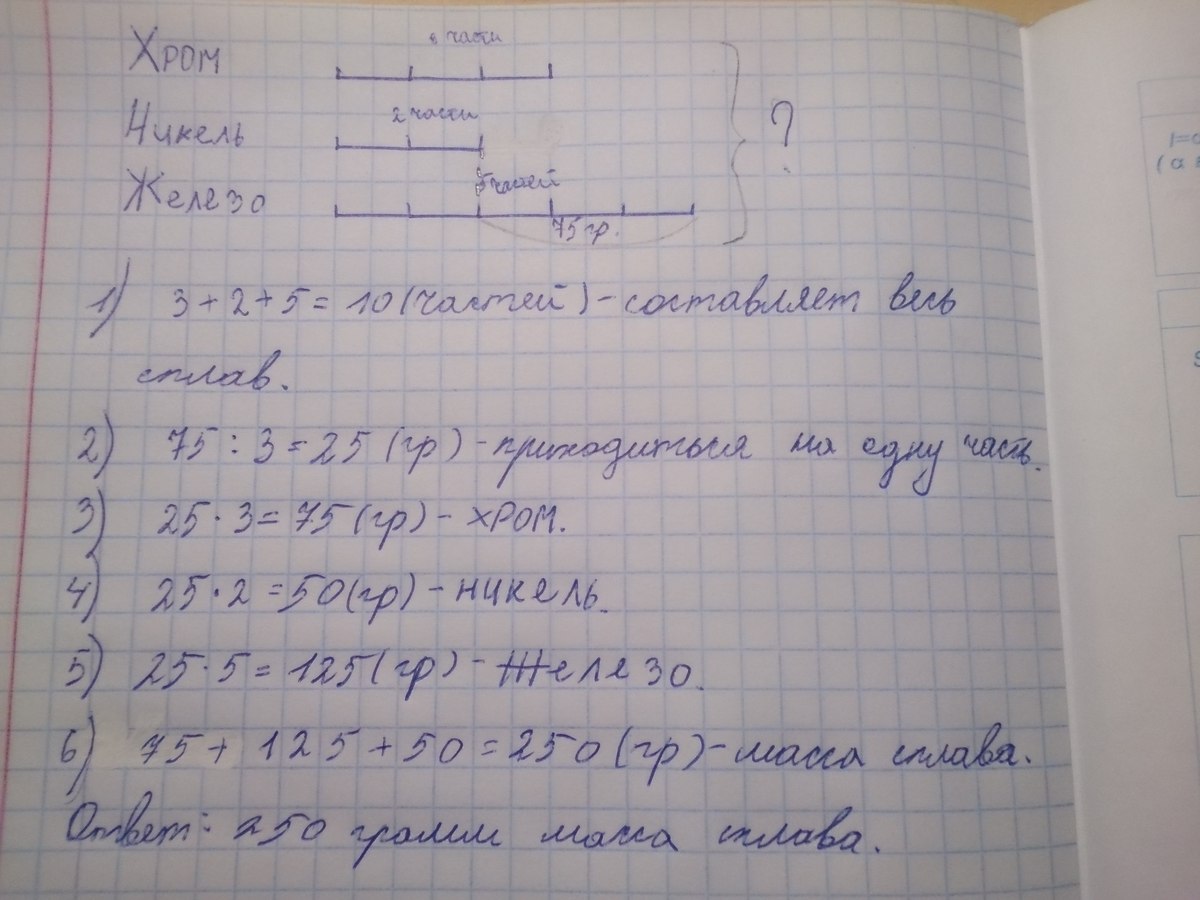 Хром
части
Никель
2 части
Железо
5 частей
75 гр.
?
1) 3+2+5=10(частей)-составляет весь
сплав.
2) 75:3=25(гр)-приходиться на одну часть.
3) 25·3=75(гр)-хром.
4) 25·2=50(гр)-никель.
5) 25·5=125(гр)-Железо.
6) 75+125+50=250(гр)-масса сплава.
Ответ: 250 грамм масса сплава.